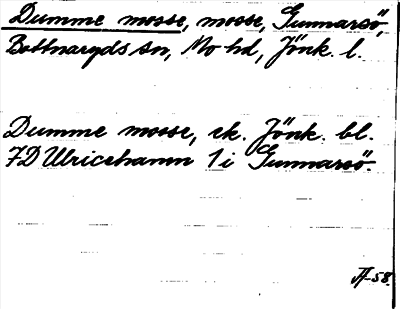 Dumme mosse, mosse, Gunnarsö,
Bottnaryds sn, Mo hd, Jönk. l.
Dumme mosse, ek. Jönk. bl.
7D Ulricehamn 1 i Gunnarsö.